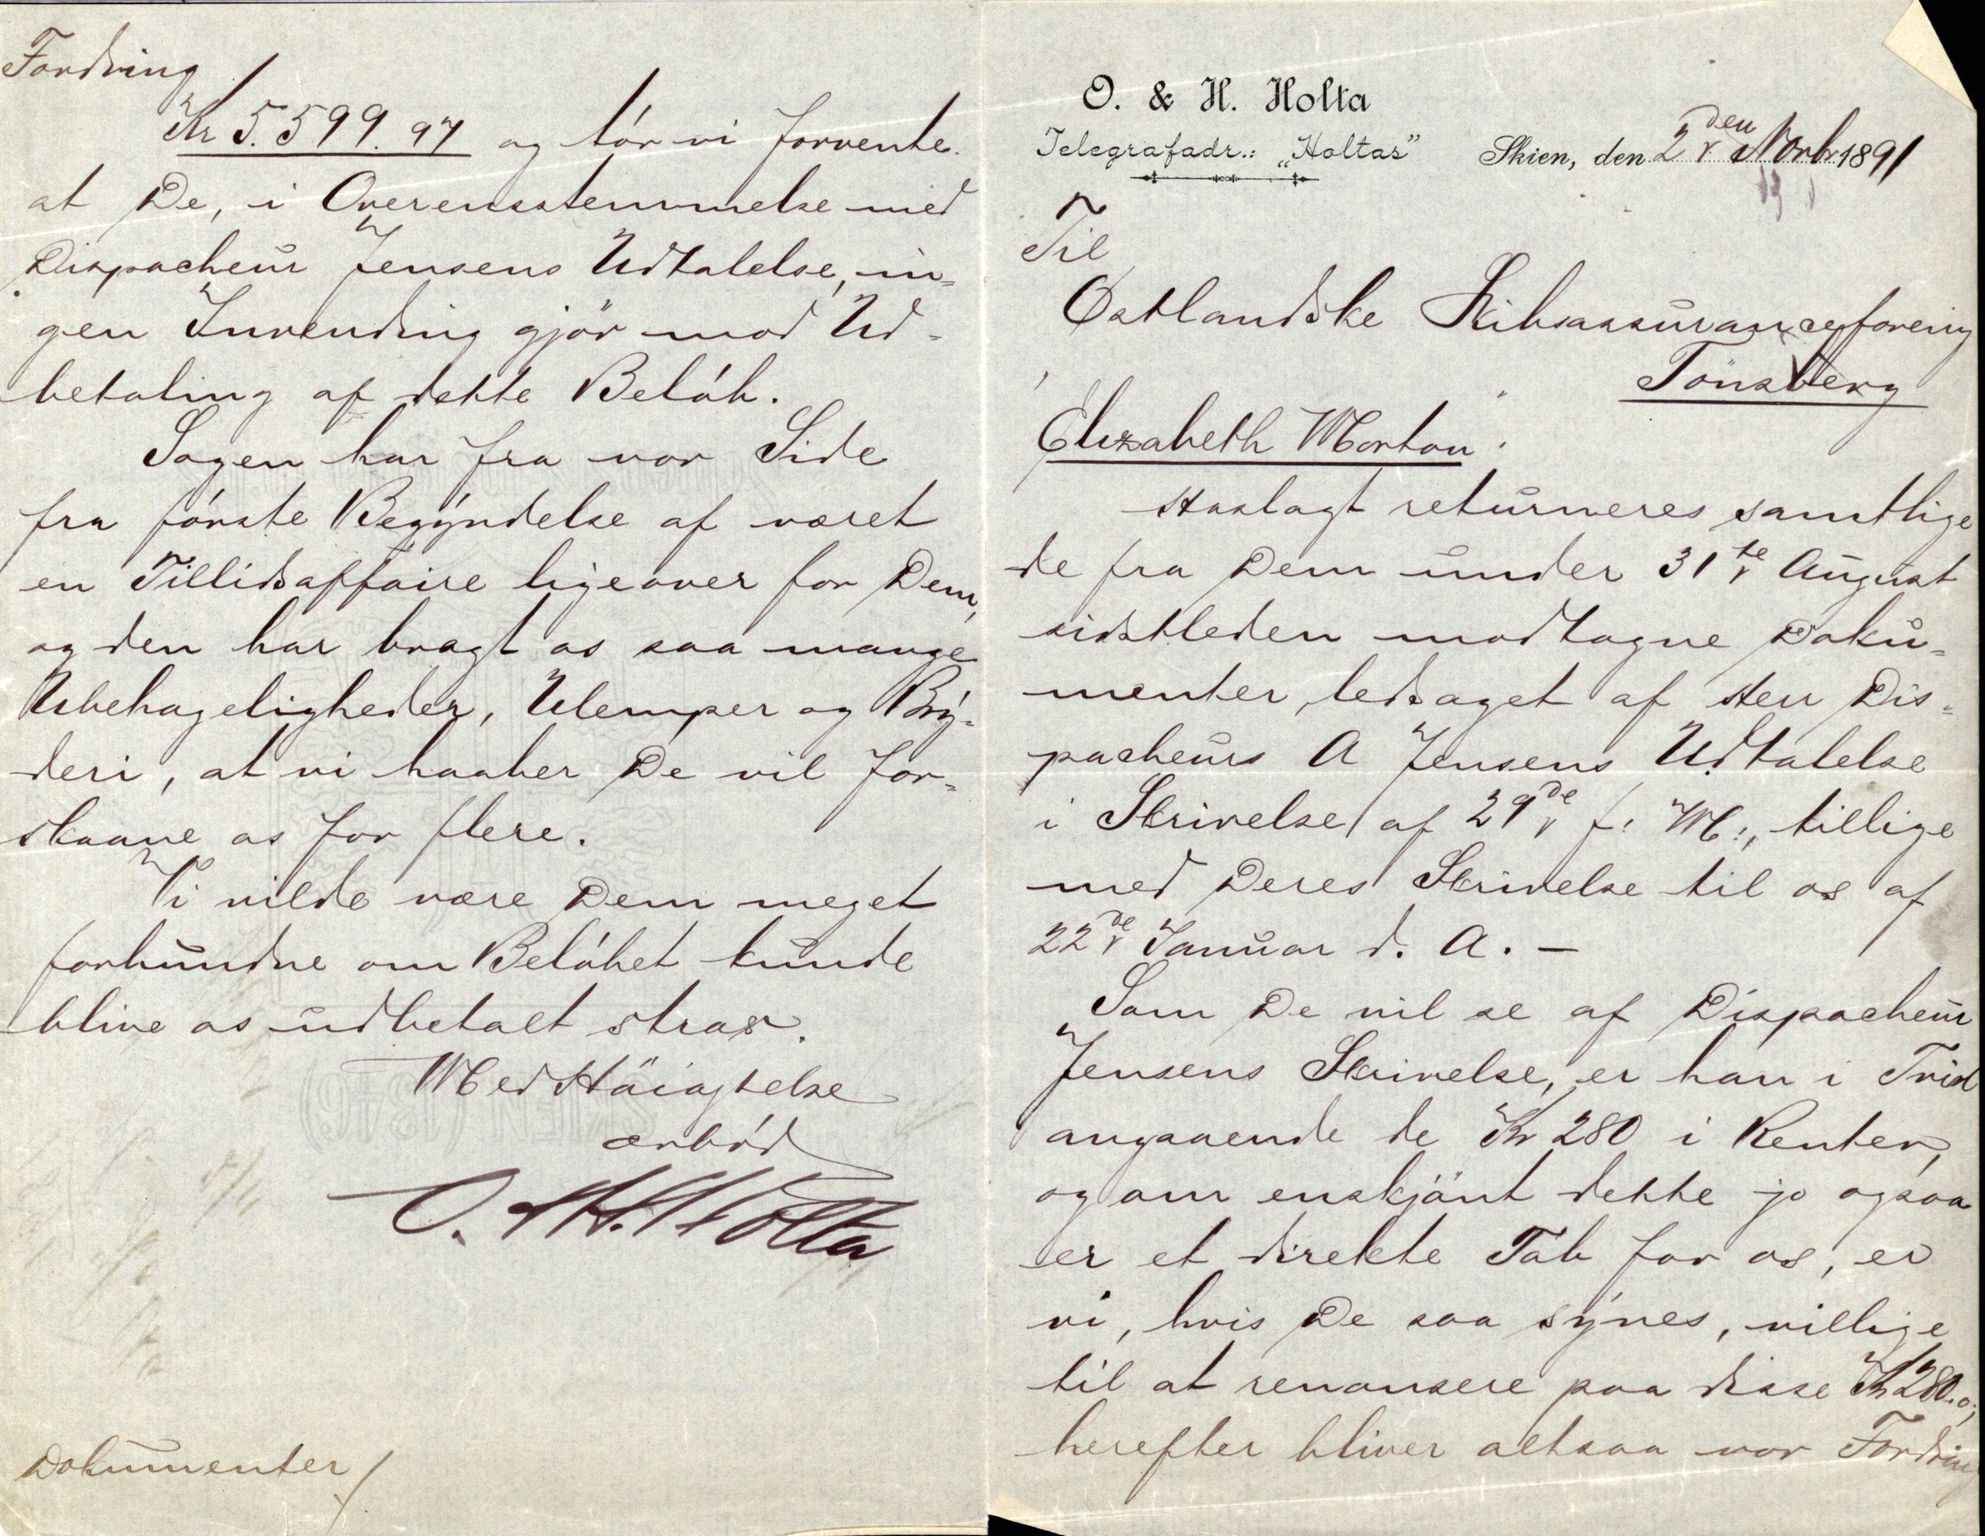 O. & H. Holta
Telegrafadr.: „Holtas”
Skien, den 2den Novbr. 1891
Til
Østlandske Skibsassuranceforening
Tönsberg
Elizabeth Morton.
Hoslagt returneres samtlige
de fra Dem under 31te August
sidstleden modtagne Doku-
menter, ledsaget af Herr Dis-
pacheurs A Jensens Udtalelse
i Skrivelse af 29de f. M., tillige
med Deres Skrivelse til os af
22de Januar d. A. —
Som De vil se af Dispacheur
Jensens Skrivelse, er han i Tvivl
angaaende de Kr 280 i Renter,
og om enskjönt dette jo ogsaa
er et direkte Tab for os, er
vi, hvis De saa synes, villige
til at renonsere paa disse Kr 280.0,
herefter bliver altsaa vor Fordring
Fordring
Kr 5.599.97 og tör vi forvente
at De, i Overensstemmelse med
Dispacheur Jensens Udtalelse, in-
gen Invending gjör mod Ud-
betaling af dette Belöb.
Sagen har fra vor Side
fra förste Begyndelse af været
en Tillidsaffaire ligeover for Dem,
og den har bragt os saa mange
Ubehageligheder, Ulemper og Bry-
deri, at vi haaber De vil for-
skaane os for flere.
Vi vilde være Dem meget
forbundne om Belöbet kunde
blive os udbetalt strax.
Med Höiagtelse
ærbód
O. & H. Holta
Dokumenter/